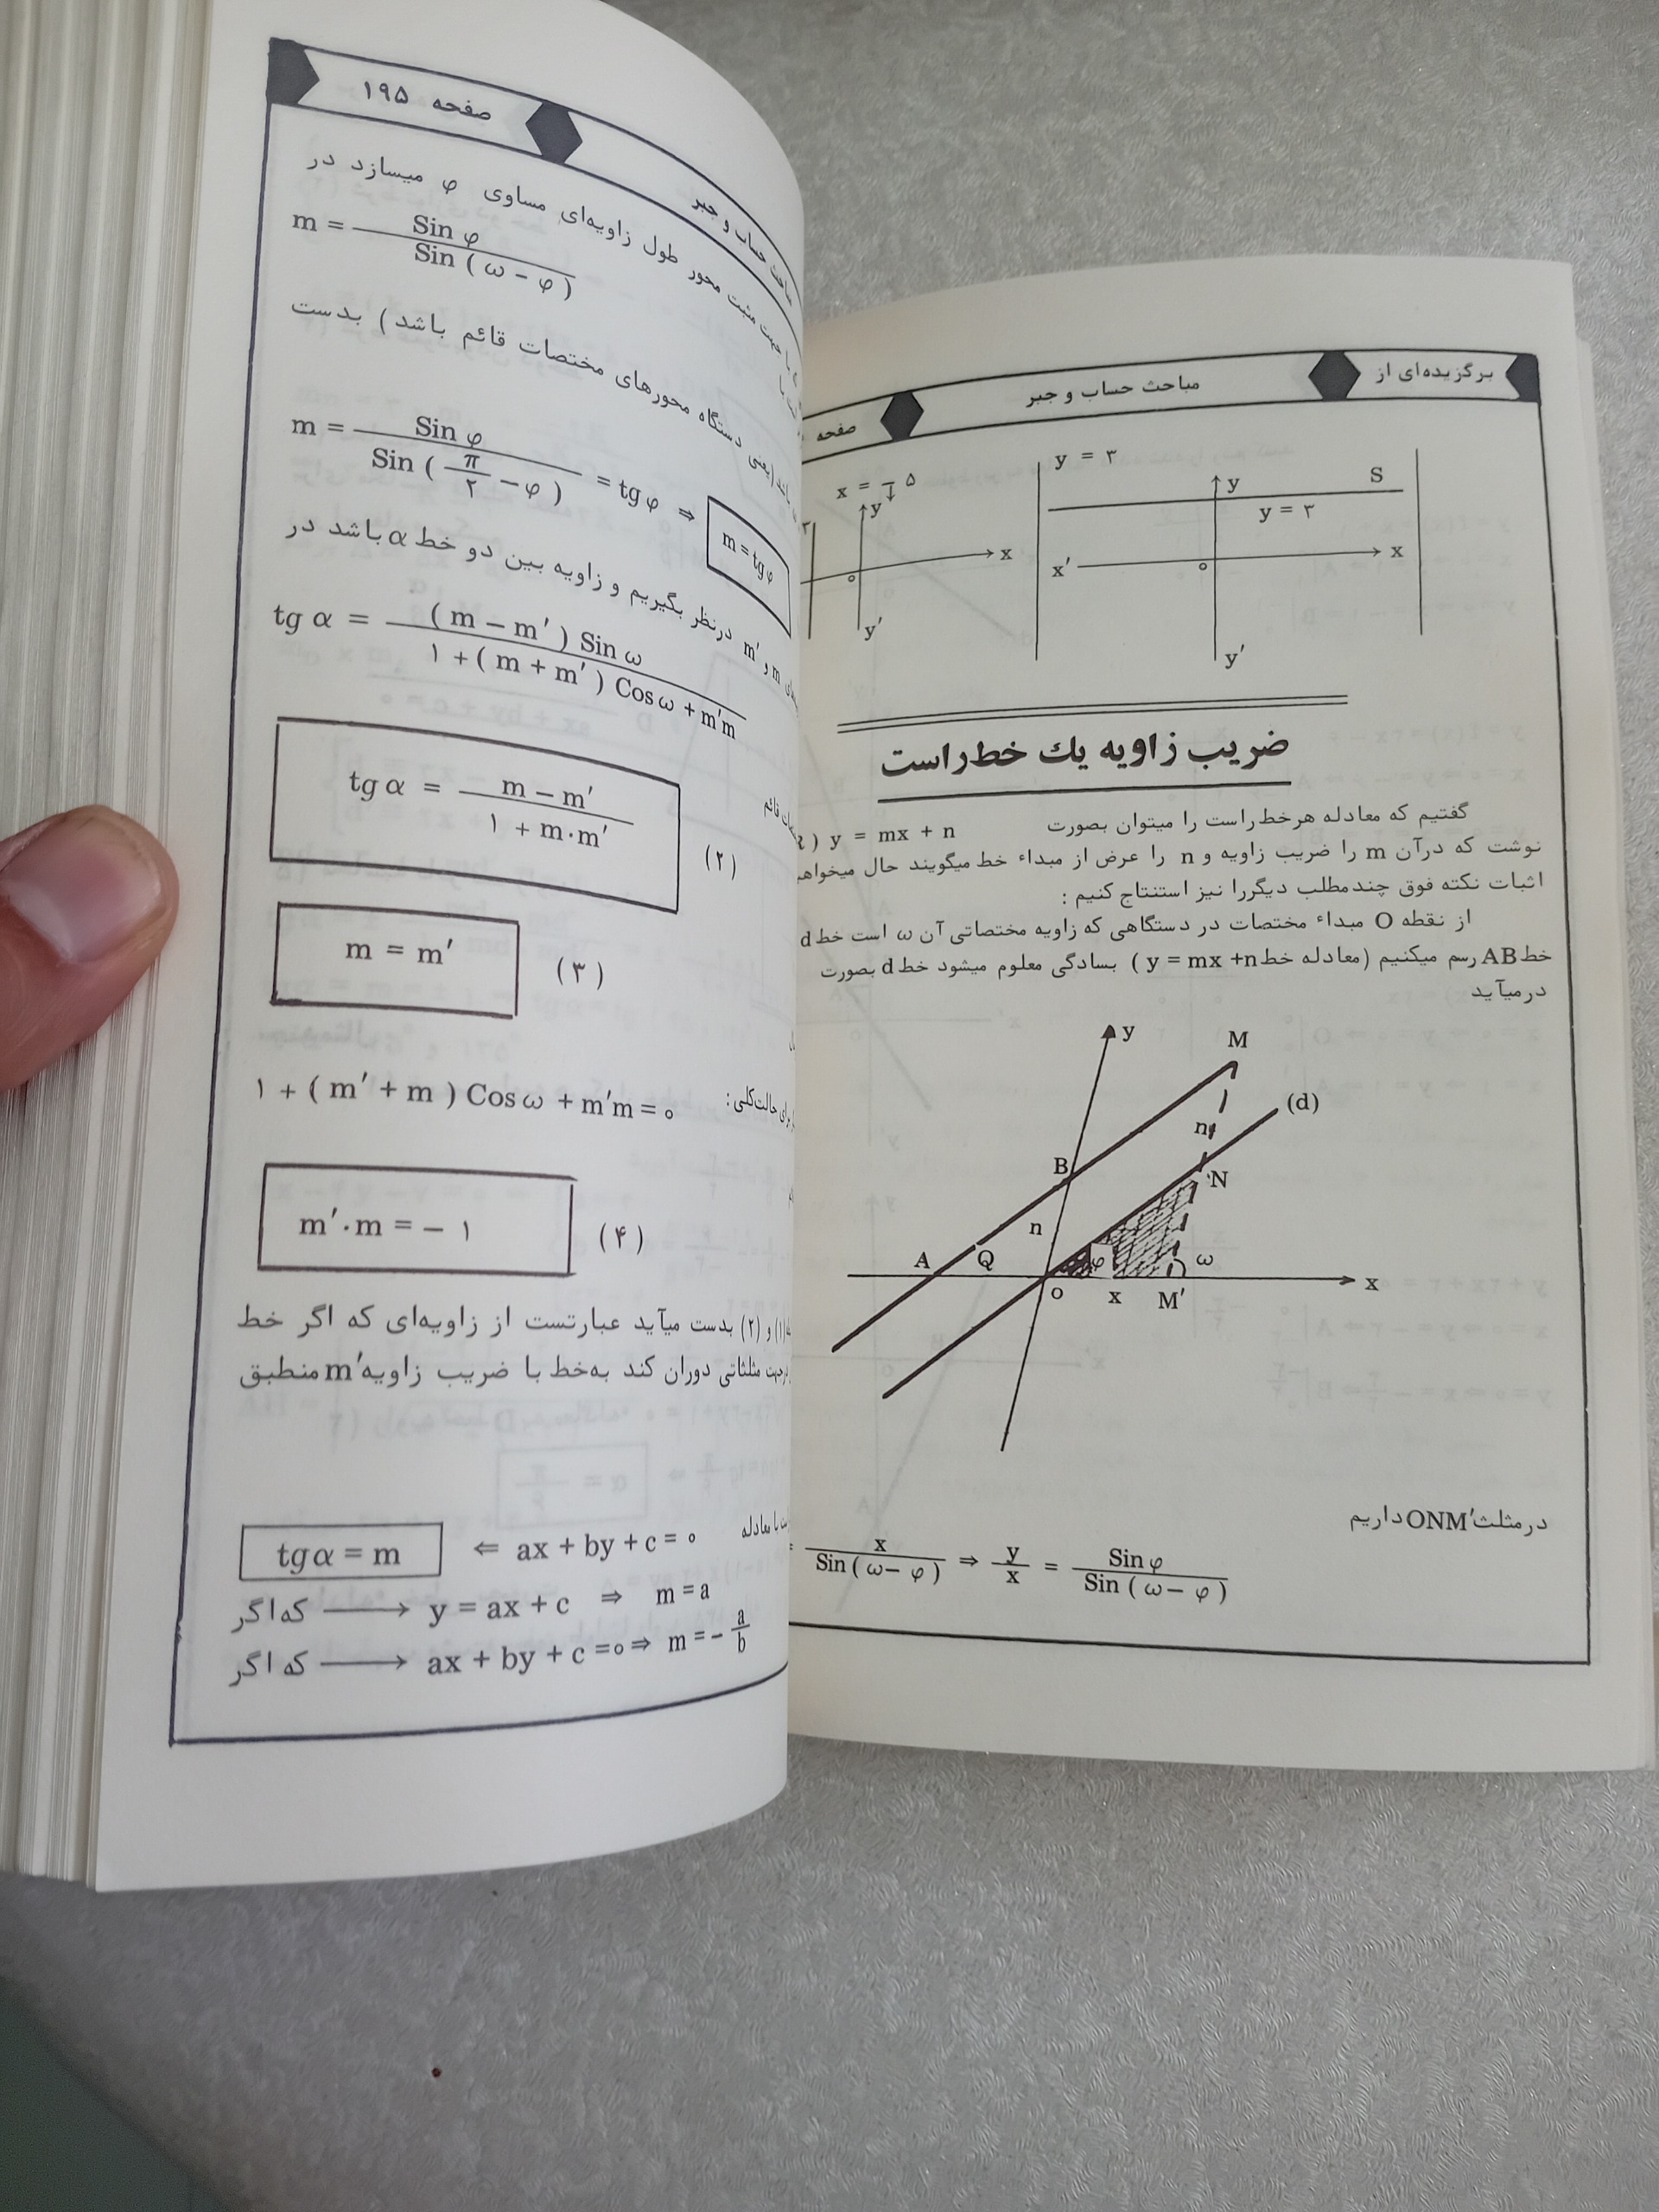 برگزیده‌ای از مباحث حساب و جبر صفحه
x = - ۵
y = ۳
y
x
o
y′
y
S
y = ۳
x′
x
o
y′
ضریب زاویه یك خط‌راست
گفتیم که معادله هرخط‌راست را میتوان بصورت y = mx + n
نوشت که درآن m را ضریب زاویه و n را عرض از مبداء خط میگویند حال میخواهی
اثبات نکته فوق چندمطلب دیگررا نیز استنتاج کنیم :
از نقطه O مبداء مختصات در دستگاهی که زاویه مختصاتی آن ω است خط d
خط AB رسم میکنیم (معادله خط y = mx +n ) بسادگی معلوم میشود خط d بصورت
درمیآید
y
M
(d)
n
B
N
n
A
Q
φ
ω
o
x
M′
x
درمثلث ONM′ داریم
= x / Sin ( ω − φ ) ⇒ y / x = Sin φ / Sin ( ω − φ )
مباحث حساب و جبر صفحه ۱۹۵
جهت مثبت محور طول زاویه‌ای مساوی φ میسازد در
m = Sin φ / Sin ( ω − φ )
(یعنی دستگاه محورهای مختصات قائم باشد) بدست
m = Sin φ / Sin ( π / ۲ − φ ) = tg φ ⇒ m = tg φ
m و m′ درنظر بگیریم و زاویه بین دو خط α باشد در
tg α = ( m − m′ ) Sin ω / ۱ + ( m + m′ ) Cos ω + m′m
قائم
tg α = m − m′ / ۱ + m·m′ (۲)
m = m′ (۳)
برای حالت‌کلی : ۱ + ( m′ + m ) Cos ω + m′m = ۰
m′·m = − ۱ (۴)
(۱) و (۲) بدست میآید عبارتست از زاویه‌ای که اگر خط
جهت مثلثاتی دوران کند به‌خط با ضریب زاویه m′ منطبق
با معادله ax + by + c = ۰ ⇐ tg α = m
که‌اگر ⟶ y = ax + c ⇒ m = a
که‌اگر ⟶ ax + by + c = ۰ ⇒ m = − a / b